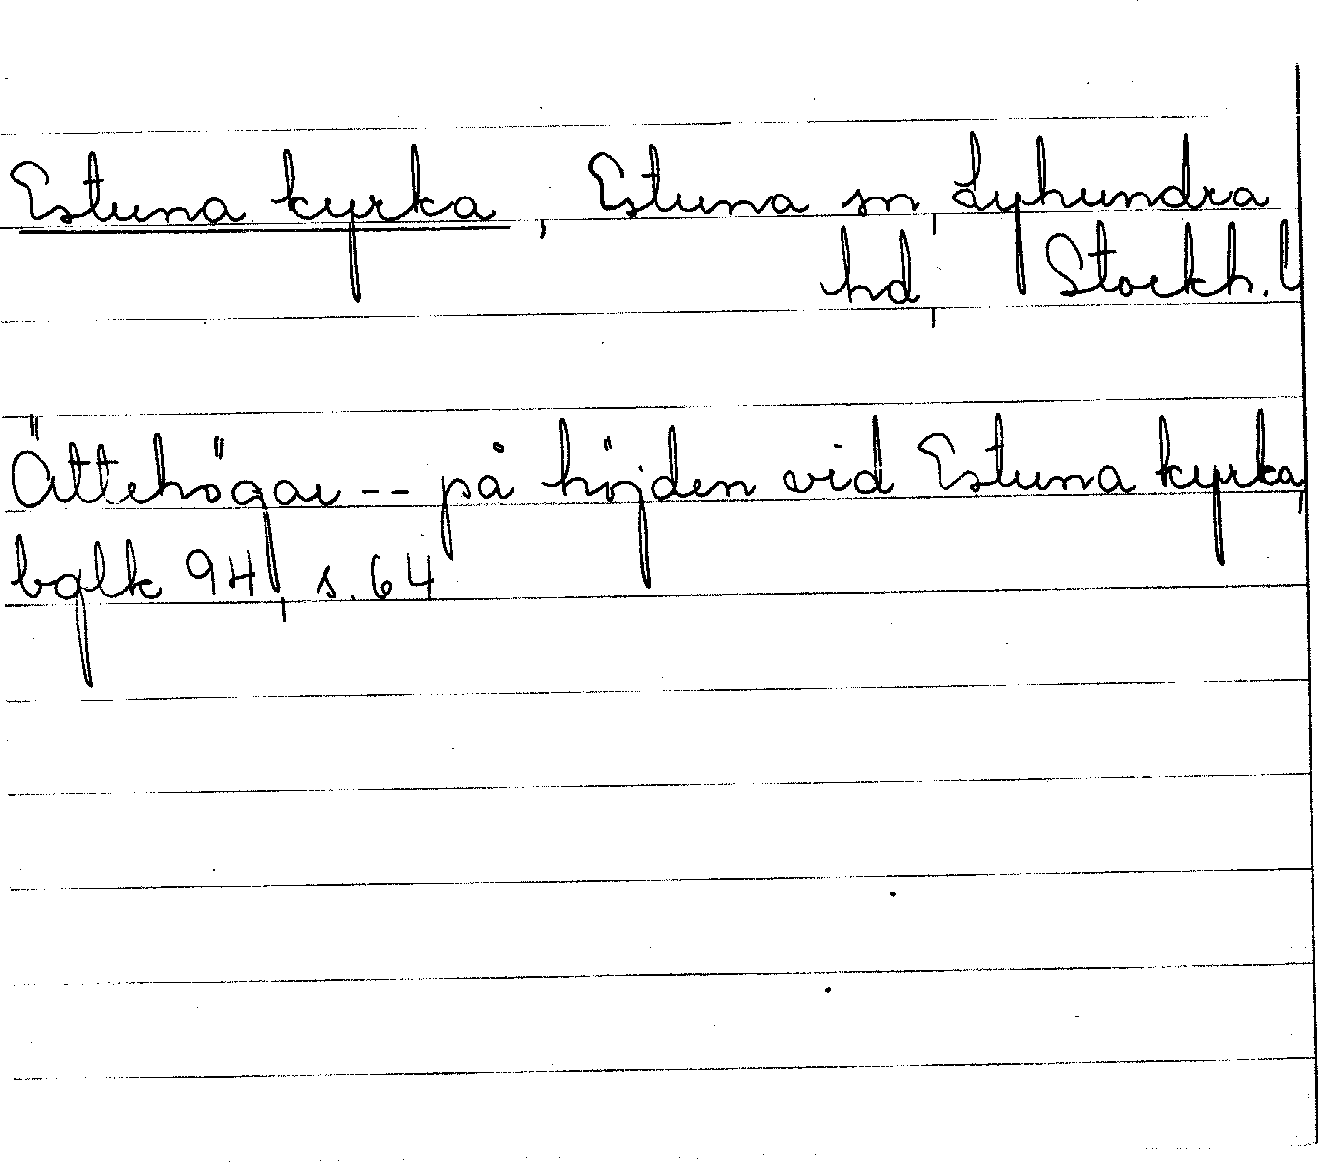 Estuna kyrka, Estuna sn, Lyhundra
hd, Stockh. l
Ättehögar -- på höjden vid Estuna kyrka,
bglk 94, s. 64